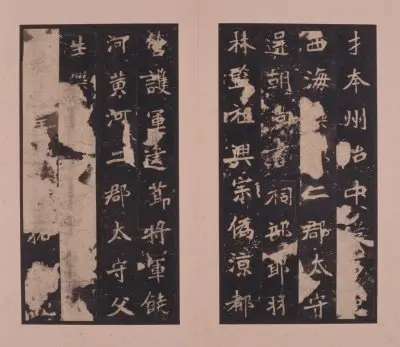 才本州治中從
西海二郡太守
還朝尚書祠部郎羽
林監祖興宗偽涼都
營護軍建節將軍饒
河黃河二郡太守父
生